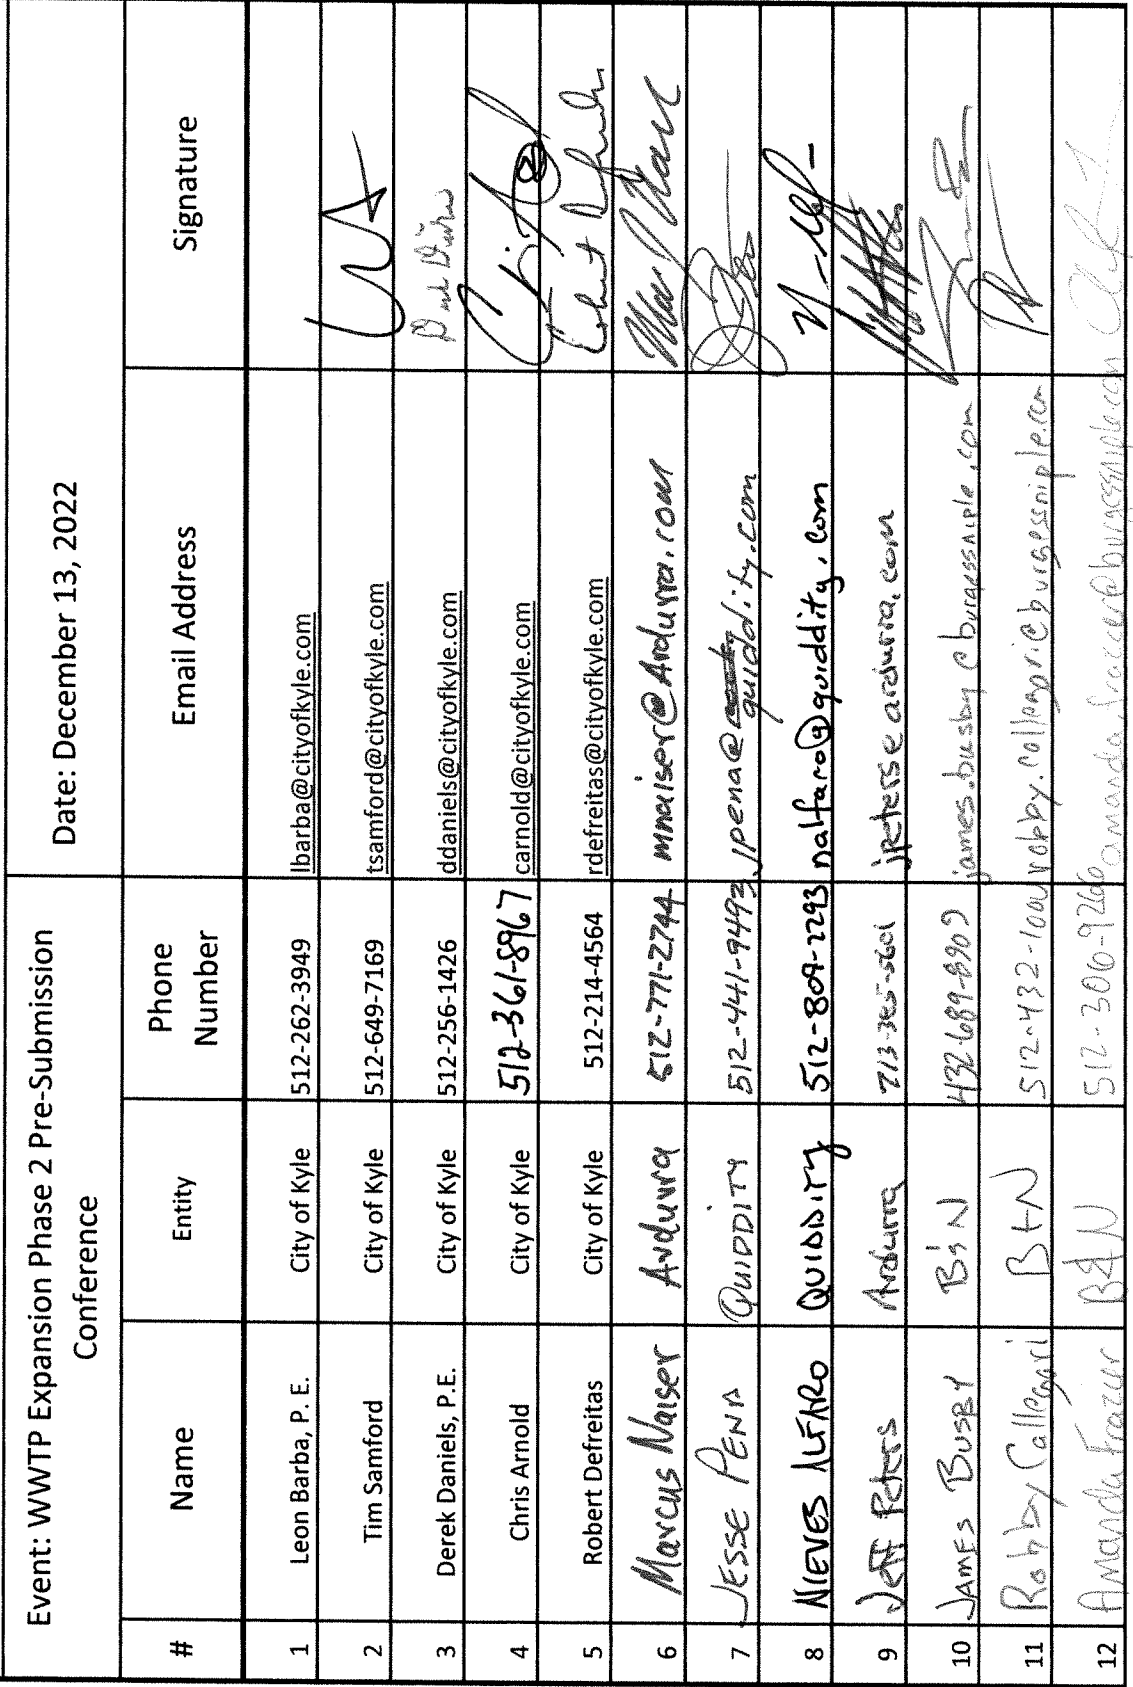 Event: WWTP Expansion Phase 2 Pre-Submission
Conference
Date: December 13, 2022
# Name Entity Phone Number Email Address Signature
1 Leon Barba, P. E. City of Kyle 512-262-3949 lbarba@cityofkyle.com
2 Tim Samford City of Kyle 512-649-7169 tsamford@cityofkyle.com
3 Derek Daniels, P.E. City of Kyle 512-256-1426 ddaniels@cityofkyle.com
4 Chris Arnold City of Kyle 512-361-8967 carnold@cityofkyle.com
5 Robert Defreitas City of Kyle 512-214-4564 rdefreitas@cityofkyle.com
6 Marcus Naiser Ardurra 512-771-2744 mnaiser@Ardurra.com
7 JESSE PENA QUIDDITY 512-441-9493 jpena@quiddity.com
8 NIEVES ALFARO QUIDDITY 512-809-2293 nalfaro@quiddity.com
9 Jeff Peters Ardurra 713-385-5601 jpeters@ardurra.com
10 JAMES BUSBY B&N 432-689-8909 james.busby@burgessniple.com
11 Robby Callegari B+N 512-432-1000 robby.callegari@burgessniple.com
12 Amanda Frazier B&N 512-306-9266 amanda.frazier@burgessniple.com